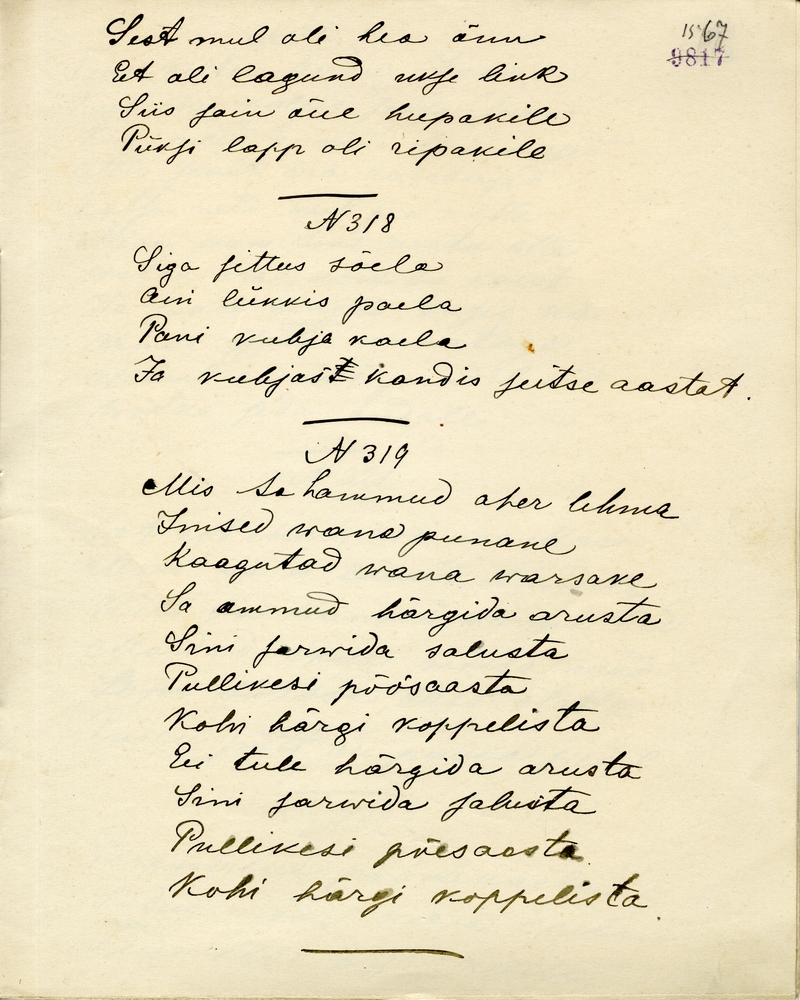 1567
9817
Sest mul oli hea õnn
Et oli lagund ukse link
Siis sain õue hupakile
Püksi lapp oli ripakile
N 318
Siga sittus sõela
Ain lükkis paela
Pani kubja kaela
Ja kubjas kandis seitse aastat.
N 319
Mis sa hammud aher lehma
Inised wana punane
Kaagutad wana warsake
Sa ammud härgida arusta
Sini sarwida salusta
Pullikesi põõsaasta
Kohi härgi koppelista
Ei tule härgida arusta
Sini sarwida salusta
Pullikesi põesaasta
Kohi härgi koppelista.